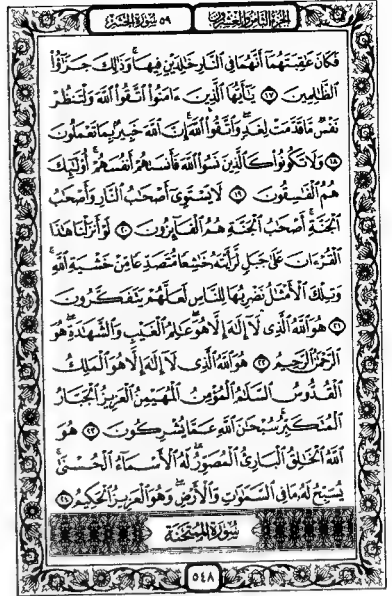 الجزء الثامن والعشرون ٥٩ سورة الحشر
فَكَانَ عَٰقِبَتَهُمَآ أَنَّهُمَا فِي ٱلنَّارِ خَٰلِدَيۡنِ فِيهَاۚ وَذَٰلِكَ جَزَٰٓؤُاْ
ٱلظَّٰلِمِينَ ١٧ يَٰٓأَيُّهَا ٱلَّذِينَ ءَامَنُواْ ٱتَّقُواْ ٱللَّهَ وَلۡتَنظُرۡ
نَفۡسٞ مَّا قَدَّمَتۡ لِغَدٖۖ وَٱتَّقُواْ ٱللَّهَۚ إِنَّ ٱللَّهَ خَبِيرُۢ بِمَا تَعۡمَلُونَ
١٨ وَلَا تَكُونُواْ كَٱلَّذِينَ نَسُواْ ٱللَّهَ فَأَنسَىٰهُمۡ أَنفُسَهُمۡۚ أُوْلَٰٓئِكَ
هُمُ ٱلۡفَٰسِقُونَ ١٩ لَا يَسۡتَوِيٓ أَصۡحَٰبُ ٱلنَّارِ وَأَصۡحَٰبُ
ٱلۡجَنَّةِۚ أَصۡحَٰبُ ٱلۡجَنَّةِ هُمُ ٱلۡفَآئِزُونَ ٢٠ لَوۡ أَنزَلۡنَا هَٰذَا
ٱلۡقُرۡءَانَ عَلَىٰ جَبَلٖ لَّرَأَيۡتَهُۥ خَٰشِعٗا مُّتَصَدِّعٗا مِّنۡ خَشۡيَةِ ٱللَّهِۚ
وَتِلۡكَ ٱلۡأَمۡثَٰلُ نَضۡرِبُهَا لِلنَّاسِ لَعَلَّهُمۡ يَتَفَكَّرُونَ
٢١ هُوَ ٱللَّهُ ٱلَّذِي لَآ إِلَٰهَ إِلَّا هُوَۖ عَٰلِمُ ٱلۡغَيۡبِ وَٱلشَّهَٰدَةِۖ هُوَ
ٱلرَّحۡمَٰنُ ٱلرَّحِيمُ ٢٢ هُوَ ٱللَّهُ ٱلَّذِي لَآ إِلَٰهَ إِلَّا هُوَ ٱلۡمَلِكُ
ٱلۡقُدُّوسُ ٱلسَّلَٰمُ ٱلۡمُؤۡمِنُ ٱلۡمُهَيۡمِنُ ٱلۡعَزِيزُ ٱلۡجَبَّارُ
ٱلۡمُتَكَبِّرُۚ سُبۡحَٰنَ ٱللَّهِ عَمَّا يُشۡرِكُونَ ٢٣ هُوَ
ٱللَّهُ ٱلۡخَٰلِقُ ٱلۡبَارِئُ ٱلۡمُصَوِّرُۖ لَهُ ٱلۡأَسۡمَآءُ ٱلۡحُسۡنَىٰۚ
يُسَبِّحُ لَهُۥ مَا فِي ٱلسَّمَٰوَٰتِ وَٱلۡأَرۡضِۖ وَهُوَ ٱلۡعَزِيزُ ٱلۡحَكِيمُ ٢٤
سُورَةُ المُمۡتَحنَة
٥٤٨